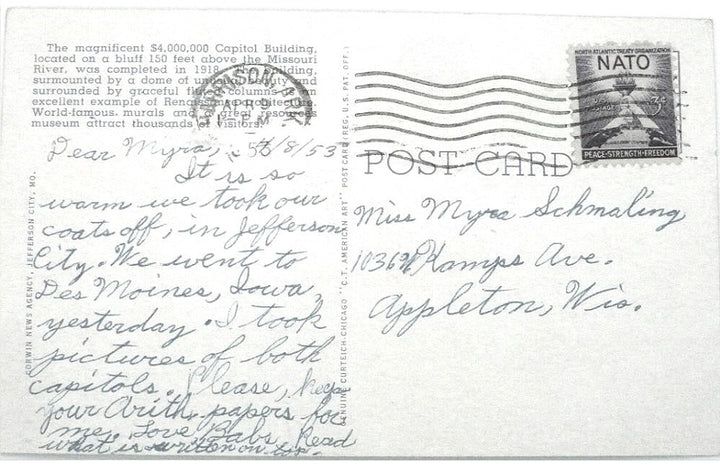 The magnificent $4,000,000 Capitol Building,
located on a bluff 150 feet above the Missouri
River, was completed in 1918. The building,
surmounted by a dome of unusual beauty and
surrounded by graceful fluted columns is an
excellent example of Renaissance architecture.
World-famous murals and great resources
museum attract thousands of visitors.
APR 9
PM
NORTH ATLANTIC TREATY ORGANIZATION
NATO
3¢
PEACE-STRENGTH-FREEDOM
POST CARD
Dear Myra, 4/8/53
It is so
warm we took our
coats off, in Jefferson
City. We went to
Des Moines, Iowa,
yesterday. I took
pictures of both
capitols. Please, keep
your Arith. papers for
me. Love Babs. Read
what is written on top.
CORWIN NEWS AGENCY, JEFFERSON CITY, MO.
GENUINE CURTEICH-CHICAGO "C.T. AMERICAN ART" POST CARD (REG. U.S. PAT. OFF.)
Miss Myra Schmaling
1036 N Kamps Ave.
Appleton, Wis.